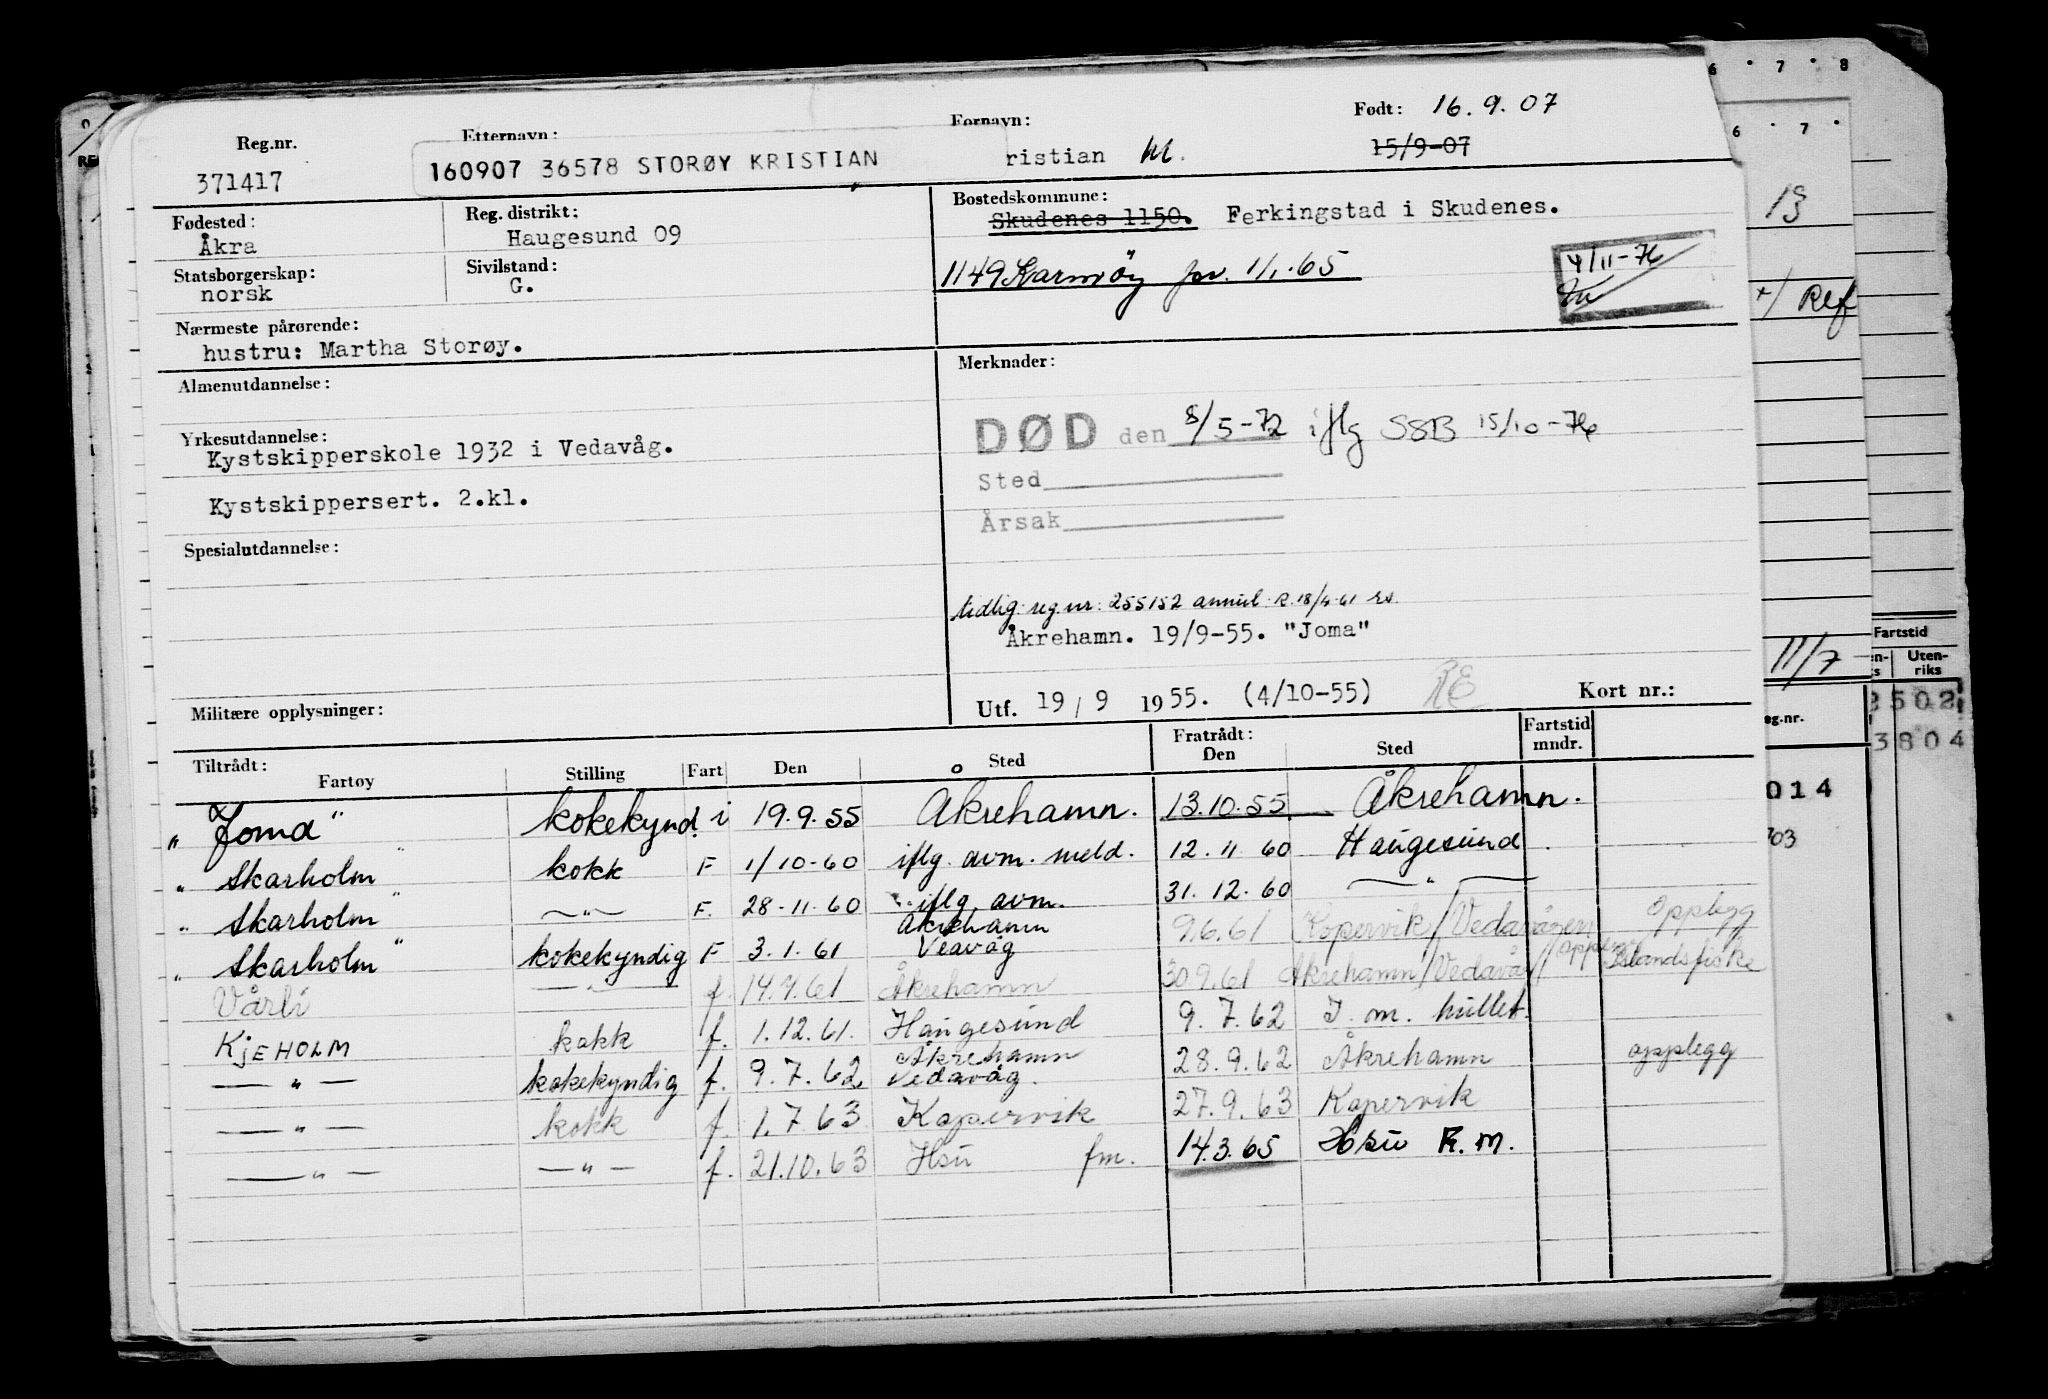 Reg.nr. Etternavn: Fornavn: Født: 16.9.07
371417 160907 36578 STORØY KRISTIAN ristian M. 15/9-07
Fødested: Reg. distrikt: Bostedskommune:
Åkra Haugesund 09 Skudenes 1150. Ferkingstad i Skudenes.
Statsborgerskap: Sivilstand: 1149 Karmøy pr. 1/1-65 4/11-76
norsk G.
Nærmeste pårørende:
hustru: Martha Storøy.
Almenutdannelse: Merknader:
DØD den 8/5-72 iflg SSB 15/10-76
Yrkesutdannelse:
Kystskipperskole 1932 i Vedavåg.
Sted
Kystskippersert. 2.kl.
Årsak
Spesialutdannelse:
tidlig. reg.nr: 255152 annul. R. 18/4-61 rs.
Åkrehamn. 19/9-55. "Joma"
Militære opplysninger: Utf. 19/9 1955. (4/10-55) RE Kort nr.:
Tiltrådt: Fratrådt: Fartstid
Fartøy Stilling Fart Den Sted Den Sted mndr.
"Joma" kokekynd. i 19.9.55 Åkrehamn. 13.10.55 Åkrehamn.
"Skarholm" kokk F 1/10-60 iflg. avm. meld. 12.11 60 Haugesund
"Skarholm" —"— F. 28-11-60 iflg. avm. 31.12.60 —"—
"Skarholm" kokekyndig F 3.1.61 Åkrehamn Veavåg 9.6.61 Kopervik/Vedavågen opplegg
Vårli —"— f. 14.9.61 Åkrehamn 30.9.61 Åkrehamn/Vedavåg/ Islandsfiske
KjEHOLM kokk f. 1.12.61. Haugesund 9.7.62 I. m. hullet.
—"— kokekyndig f. 9.7.62 Åkrehamn Vedavåg. 28.9.62 Åkrehamn opplegg
—"— kokk f. 1.7 63 Kopervik 27.9.63 Kopervik
—"— —"— f. 21.10.63 Hsu fm. 14.3.65 Hsu F.M.
6 7 8
6 7
13
+/ Ref
Fartstid
11/7
Uten-
riks
2502
3804
eg.nr.
014
703